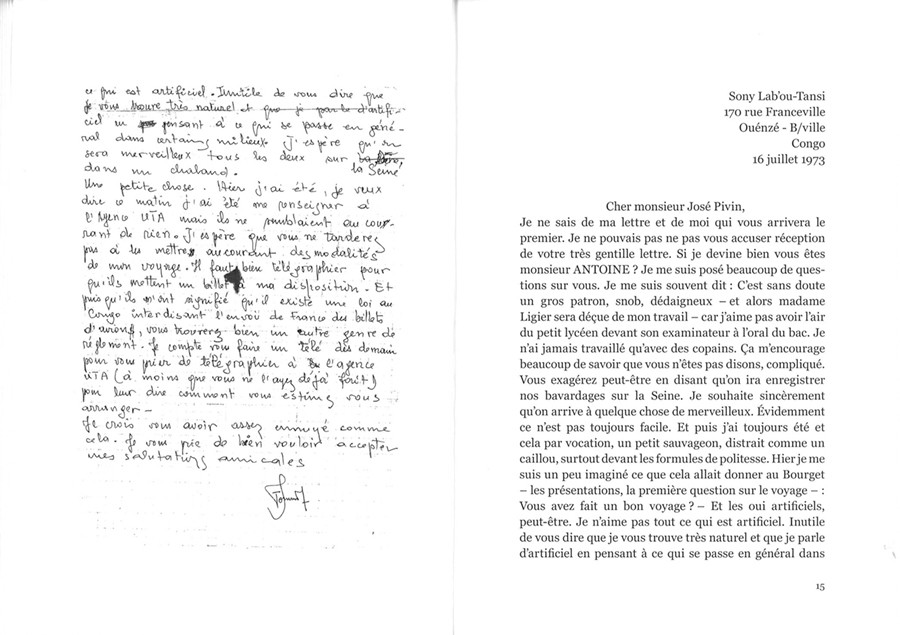 ce qui est artificiel. Inutile de vous dire que
je vous trouve très naturel et que je parle d'artifi-
ciel en pensant à ce qui se passe en géné-
ral dans certains milieux. J'espère qu'on
sera merveilleux tous les deux sur
la Seine
dans un chaland.
Une petite chose. Hier j'ai été, je veux
dire ce matin j'ai été me renseigner à
l'Agence UTA mais ils ne semblaient au cou-
rant de rien. J'espère que vous ne tarderez
pas à les mettre au courant des modalités
de mon voyage. Il faut bien télégraphier pour
qu'ils mettent un billet à ma disposition. Et
puisqu'ils m'ont signifié qu'il existe une loi au
Congo interdisant l'envoi de France des billets
d'avions, vous trouverez bien un autre genre de
règlement. Je compte vous faire un télé dès demain
pour vous prier de télégraphier à l'agence
UTA (à moins que vous ne l'ayez déjà fait)
pour leur dire comment vous estimez vous
arranger –
Je crois vous avoir assez ennuyé comme
cela. Je vous prie de bien vouloir accepter
mes salutations amicales
Sony Lab'ou-Tansi
170 rue Franceville
Ouénzé - B/ville
Congo
16 juillet 1973
Cher monsieur José Pivin,
Je ne sais de ma lettre et de moi qui vous arrivera le
premier. Je ne pouvais pas ne pas vous accuser réception
de votre très gentille lettre. Si je devine bien vous êtes
monsieur ANTOINE ? Je me suis posé beaucoup de ques-
tions sur vous. Je me suis souvent dit : C'est sans doute
un gros patron, snob, dédaigneux – et alors madame
Ligier sera déçue de mon travail – car j'aime pas avoir l'air
du petit lycéen devant son examinateur à l'oral du bac. Je
n'ai jamais travaillé qu'avec des copains. Ça m'encourage
beaucoup de savoir que vous n'êtes pas disons, compliqué.
Vous exagérez peut-être en disant qu'on ira enregistrer
nos bavardages sur la Seine. Je souhaite sincèrement
qu'on arrive à quelque chose de merveilleux. Évidemment
ce n'est pas toujours facile. Et puis j'ai toujours été et
cela par vocation, un petit sauvageon, distrait comme un
caillou, surtout devant les formules de politesse. Hier je me
suis un peu imaginé ce que cela allait donner au Bourget
– les présentations, la première question sur le voyage – :
Vous avez fait un bon voyage ? – Et les oui artificiels,
peut-être. Je n'aime pas tout ce qui est artificiel. Inutile
de vous dire que je vous trouve très naturel et que je parle
d'artificiel en pensant à ce qui se passe en général dans
15